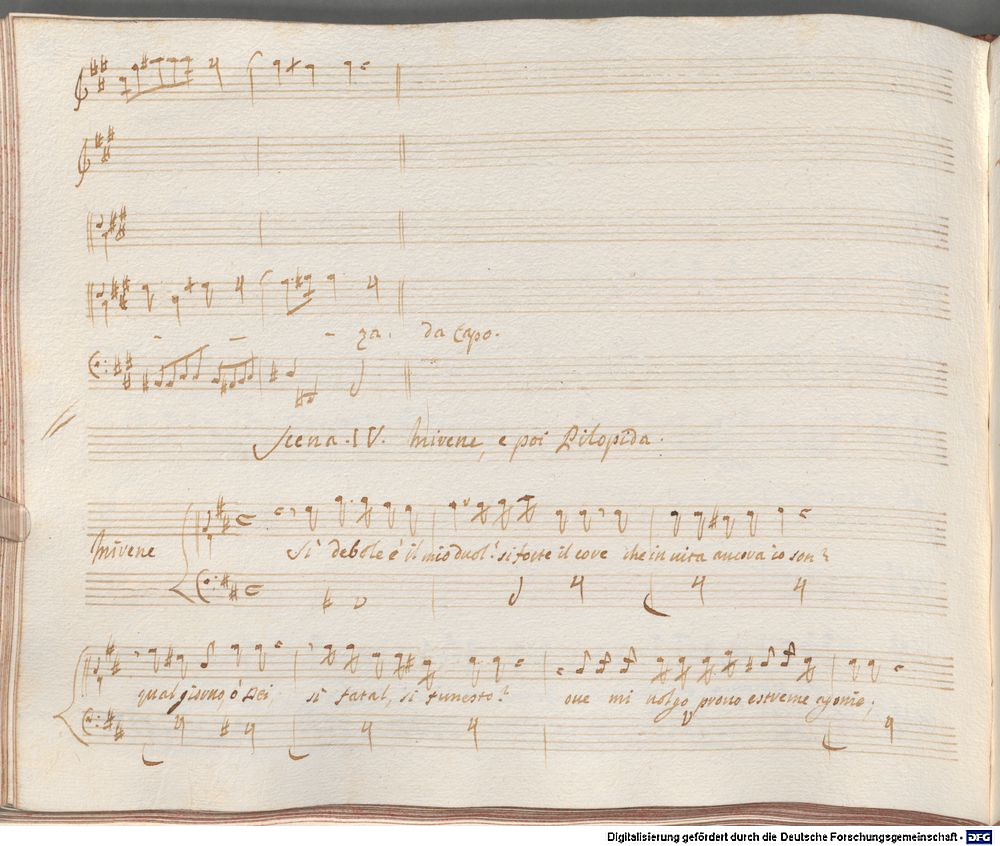 - - - za. da Capo.
Scena. IV. Mirene, e poi Pilopida.
Mirene
Si debole è il mio duol! si forte il core che in vita ancora io son?
qual giorno, o Dei, si fatal, si funesto? ove mi volgo provo estreme agonie;
Digitalisierung gefördert durch die Deutsche Forschungsgemeinschaft - DFG